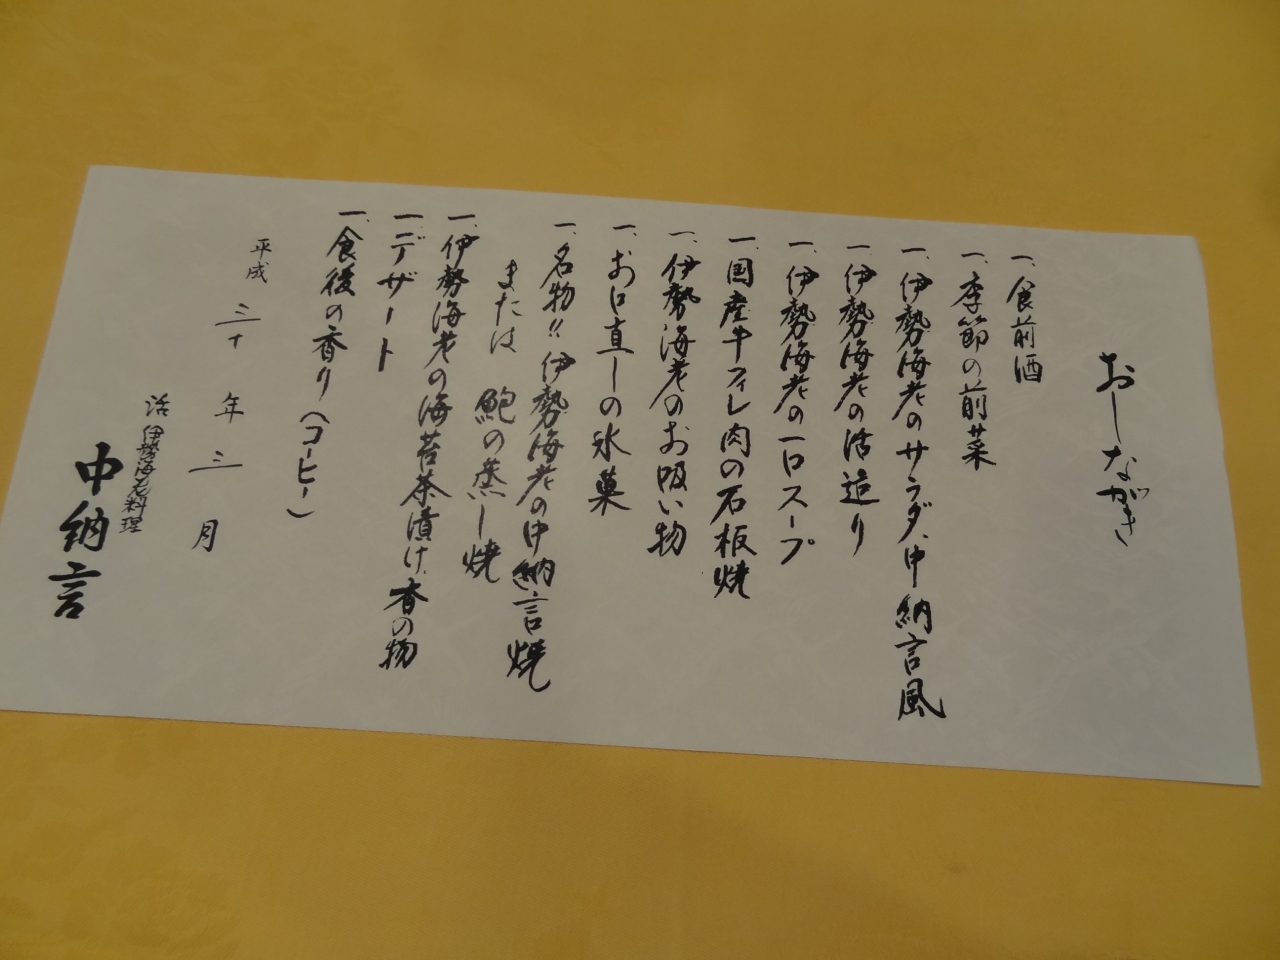 おしながき
一、食前酒
一、季節の前菜
一、伊勢海老のサラダ、中納言風
一、伊勢海老の活造り
一、伊勢海老の一口スープ
一、国産牛フィレ肉の石板焼
一、伊勢海老のお吸い物
一、お口直しの氷菓
一、名物!!伊勢海老の中納言焼
または 鮑の蒸し焼
一、伊勢海老の海苔茶漬け、香の物
一、デザート
一、食後の香り(コーヒー)
平成 三十 年 三 月
活伊勢海老料理
中納言